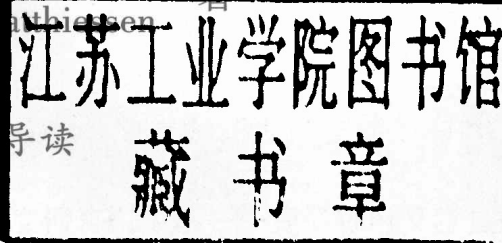 著
atthiessen
江苏工业学院图书馆
导读
藏书章